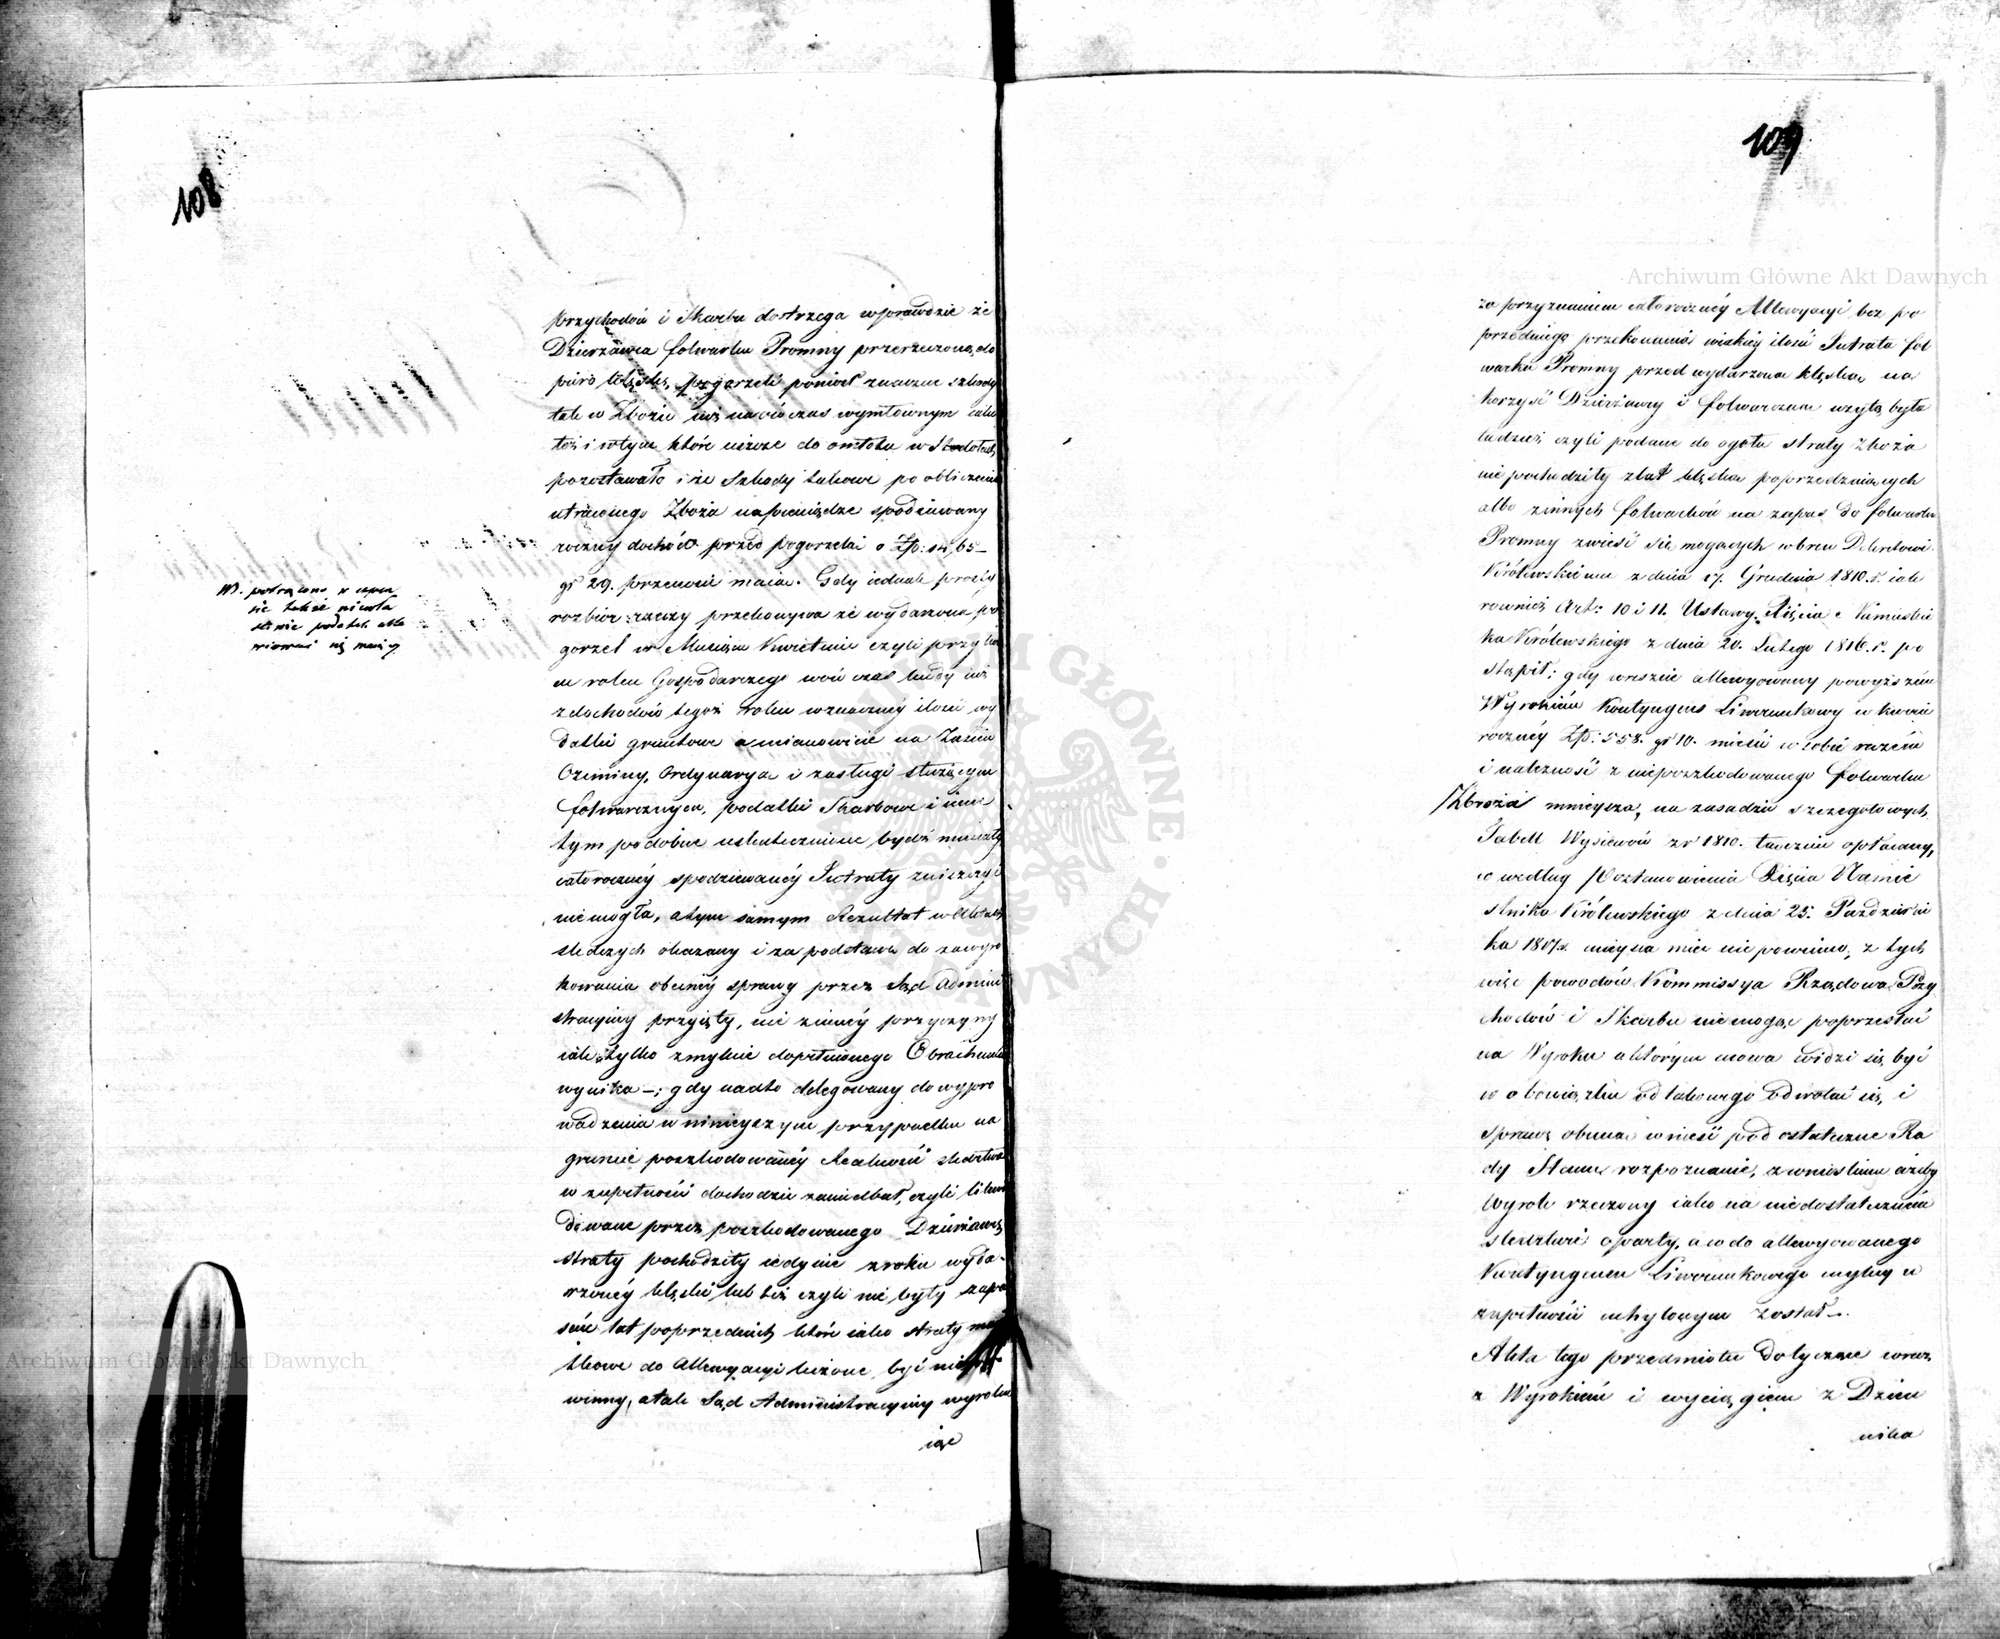 108
przychodów i Skarbu dostrzega wprawdzie że
Dzierżawca folwarku Promny przerzuconą do
piéro klęską pogorzeli poniósł znaczne szkody
tak w Zbożu już na ów czas wymłównym iako
też i w tym które ieszcze do omłotu w Stodołach
pozostawało i że Szkody takowe po obliczeniu
utraconego Zboża na pieniądze spodziewany
roczny dochód przed pogorzelą o Zp: 14,65 –
gr 29. przenosić maią. Gdy iednak prosty
rozbiór rzeczy przekonywa że wydarzona po
gorzel w Miesiącu Kwietniu czyli przy koń
cu roku Gospodarczego wów czas kiedy iuż
z dochodów tegoż roku w znacznéy ilości wy
datki gruntowe a mianowicie na Zasiew
Oziminy, Ordynarya i zasługi służącym
folwarcznym, podatki Skarbowe i inne
tym podobne uskutecznione bydź musiały
całorocznéy spodziewanéy Intraty zniszczyć
nie mogła, a tym samym Rezultat w Aktach
śledczych okazany i za podstawę do zawyro
kowania obecnéy sprawy przez Sąd Admini
stracyiny przyięty, nie z innéy przyczyny
iak tylko z mylnie dopełnionego Obrachunku
wynika –; gdy nadto delegowany do wypro
wadzenia w ninieyszym przypadku na
gruncie poszkodowanéy Realności śledztwa
w zupełności dochodzić zaniedbał, czyli likwi
dowane przez poszkodowanego Dzierżawcę
straty pochodziły iedynie z roku wyda-
rzonéy klęski lub też czyli nie były zapa
sem lat poprzednich które iako straty maią
tkowe do Allewiacyi liczone być nie po
winny, a tak Sąd Administracyiny wyroku
iąc
NB. potrącono w czynn
sie także niewła
ściwie podatek alle
wiować się maiący
109
za przyznaniem całorocznéy Allewyacyi bez po
przedniego przekonania wiakiéy ilości Intrata fol
warku Promny przed wydarzoną klęską na
korzyść Dzierżawcy i folwarczną użytą była
tudzież czyli podane do ogołu straty Zboża
nie pochodziły z lat klęską poprzedzaiących
albo z innych folwarków na zapas do folwarku
Promny zwieść się mogących wbrew Dekretowi
Królewskiemu z dnia 17. Grudnia 1810. r. iak
również Art: 10 i 11. Ustawy Xięcia Namiestni
ka Królewskiego z dnia 20. Lutego 1816. r. po
stąpił; gdy wreszcie allewyowany powyższém
Wyrokiém Kontyngens Liwerunkowy w kwocie
rocznéy Zp: 558. gr 10. mieści w sobie razém
i należność z nieposzkodowanego folwarku
Zbroża mnieysza, na zasadzie szczegółowych
Tabell Wysiewów z r 1810. łącznie opłacany,
a według Postanowienia Xięcia Namie
stnika Królewskiego z dnia 25. Październi
ka 1817 r. mieysca mieć nie powinno, z tych
więc powodów Kommissya Rządowa Przy
chodów i Skarbu nie mogąc poprzestać
na Wyroku o którym mowa widzi się być
w obowiązku od takowego odwołać się, i
sprawę obecną wnieść pod ostateczne Ra
dy Stanu rozpoznanie, z wnioskiem ażeby
Wyrok rzeczony iako na niedostateczném
śledztwie oparty, a w do allewyowanego
Kontyngensu Liwerunkowego mylny w
zupełności uchylonym został –.
Akta tego przedmiotu dotyczące wraz
z Wyrokiem i wyciągiem z Dzien
nika
Archiwum Główne Akt Dawnych
Archiwum Główne Akt Dawnych